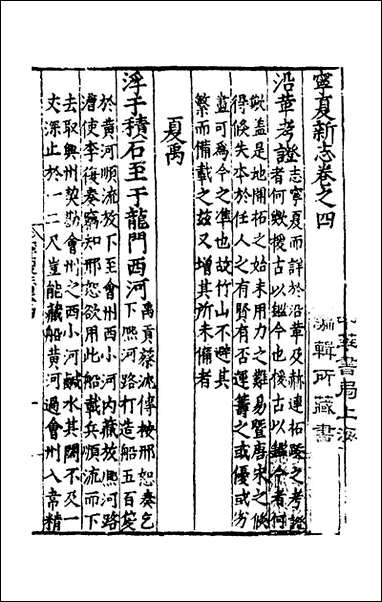 寧夏新志卷之四
中華書局上海
編輯所藏書
沿革考證
志寧夏而詳於沿革及赫連拓跋之考證
者何歟援古以鑑今也援古以鑑今者何
歟蓋是地開拓之始末用力之難易暨唐宋之倏
得倏失本於任人之有賢有否運籌之或優或劣
盖可為今之準也故竹山不避其
繁而備載之茲又增其所未備者
夏禹
浮于積石至于龍門西河
禹貢蔡沈傳按邢恕奏乞
下熙河路打造船五百隻
於黄河順流放下至會州西小河内藏放熙河路
漕使李復奏竊知邢恕欲用此船載兵順流而下
去取興州契勘會州之西小河鹹水其闊不及一
丈深止於一二尺豈能藏船黄河過會州入韋精